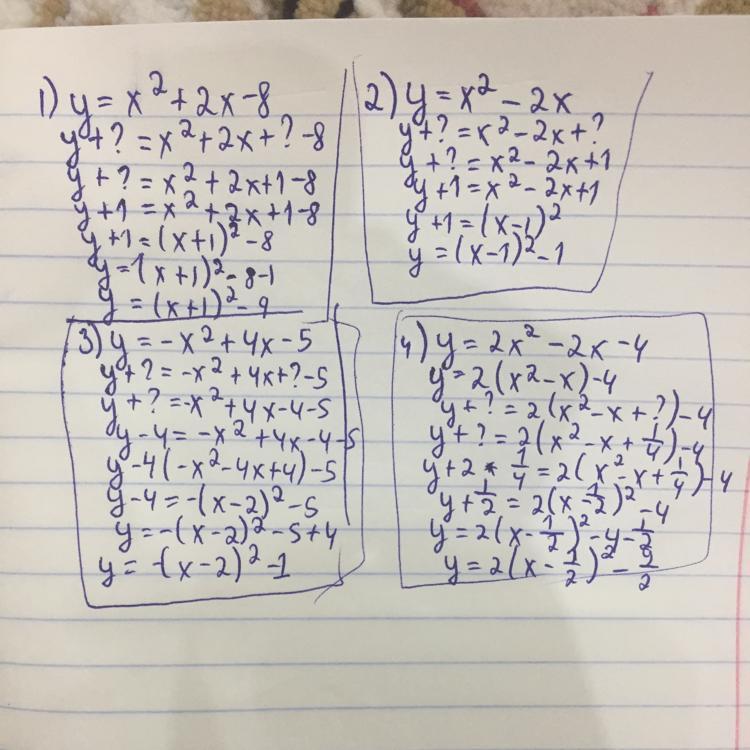 1) y = x² + 2x - 8
y + ? = x² + 2x + ? - 8
y + ? = x² + 2x + 1 - 8
y + 1 = x² + 2x + 1 - 8
y + 1 = (x + 1)² - 8
y = (x + 1)² - 8 - 1
y = (x + 1)² - 9
2) y = x² - 2x
y + ? = x² - 2x + ?
y + ? = x² - 2x + 1
y + 1 = x² - 2x + 1
y + 1 = (x - 1)²
y = (x - 1)² - 1
3) y = -x² + 4x - 5
y + ? = -x² + 4x + ? - 5
y + ? = -x² + 4x - 4 - 5
y - 4 = -x² + 4x - 4 - 5
y - 4 (-x² - 4x + 4) - 5
y - 4 = -(x - 2)² - 5
y = -(x - 2)² - 5 + 4
y = -(x - 2)² - 1
4) y = 2x² - 2x - 4
y = 2(x² - x) - 4
y + ? = 2(x² - x + ?) - 4
y + ? = 2(x² - x + 1/4) - 4
y + 2 * 1/4 = 2(x² - x + 1/4) - 4
y + 1/2 = 2(x - 1/2)² - 4
y = 2(x - 1/2)² - 4 - 1/2
y = 2(x - 1/2)² - 9/2